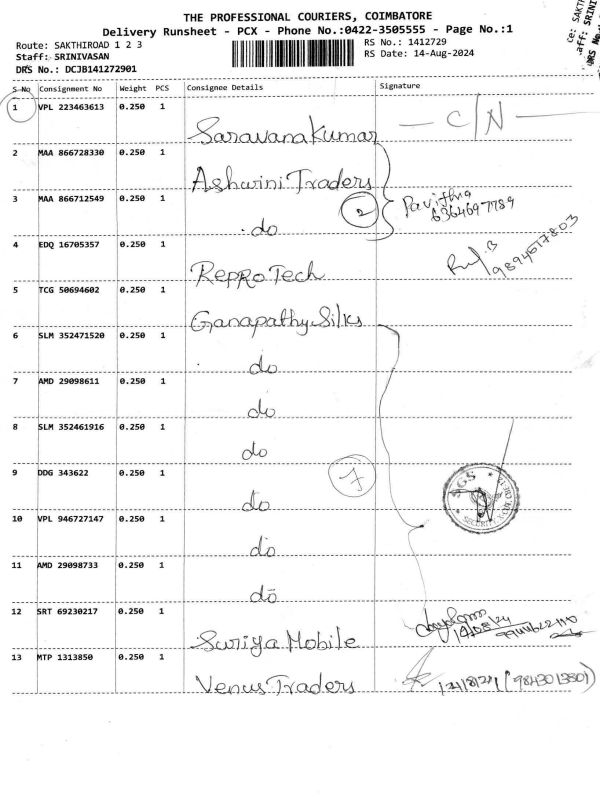 THE PROFESSIONAL COURIERS, COIMBATORE
Delivery Runsheet - PCX - Phone No.:0422-3505555 - Page No.:1
Route: SAKTHIROAD 1 2 3
RS No.: 1412729
Staff: SRINIVASAN
RS Date: 14-Aug-2024
DRS No.: DCJB141272901
S No Consignment No Weight PCS Consignee Details Signature
1 VPL 223463613 0.250 1 Saravanakumar C/N
2 MAA 866728330 0.250 1 Ashwini Traders
3 MAA 866712549 0.250 1 do 2 Pavithra
6364697789
4 EDQ 16705357 0.250 1 Repro Tech 9894617803
5 TCG 50694602 0.250 1 Ganapathy Silks
6 SLM 352471520 0.250 1 do
7 AMD 29098611 0.250 1 do
8 SLM 352461916 0.250 1 do
9 DDG 343622 0.250 1 do 7
SGS
SECURITY
10 VPL 946727147 0.250 1 do
11 AMD 29098733 0.250 1 do
12 SRT 69230217 0.250 1 Suriya Mobile
13 MTP 1313850 0.250 1 Venus Traders